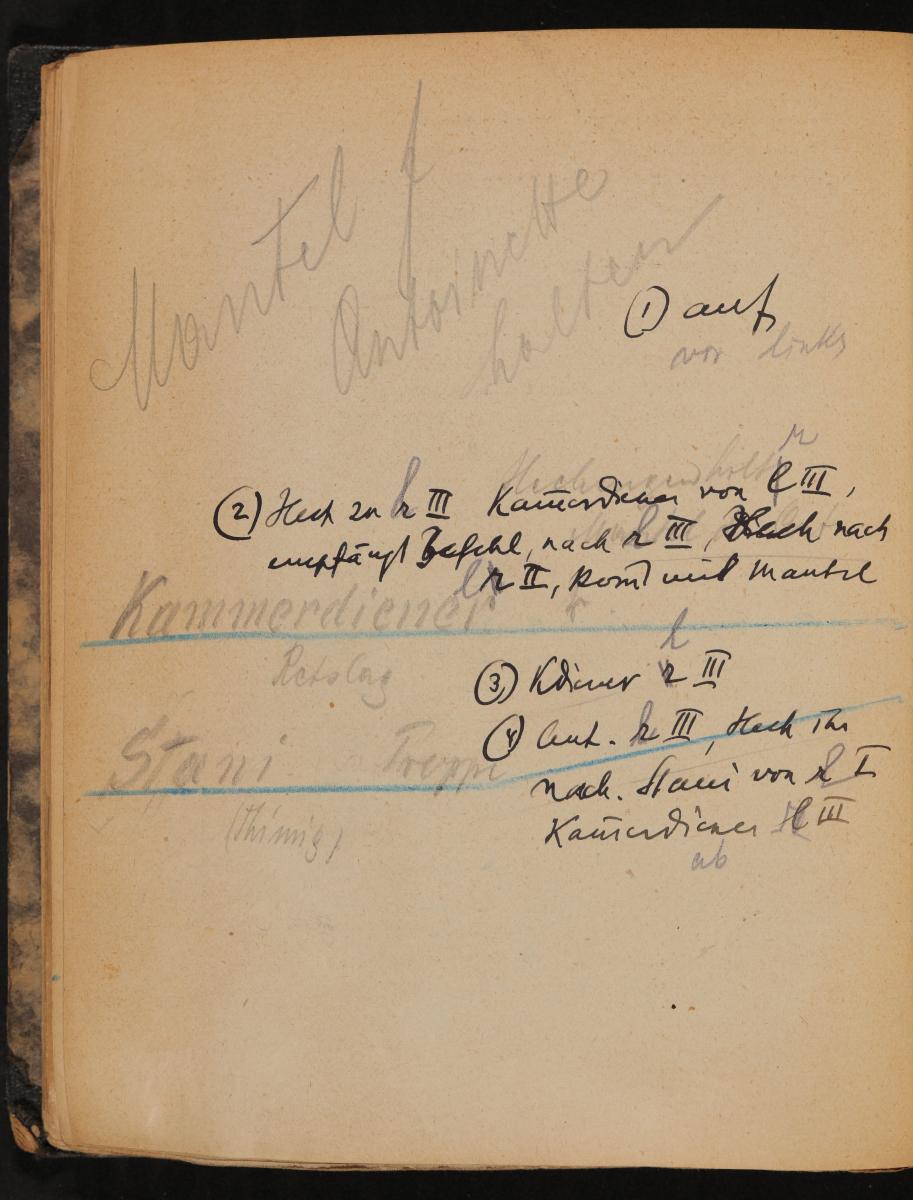 Mantel f
Antoinette
halten
① auf
vor links
Hechingen hilft
② Hech zu l III Kam̄erdiener von r III,
empfängt Befehl, nach l III, Hech nach
l II, kom̄t mit Mantel
Kammerdiener
③ Kdiener l III
④ Ant. l III, Hech ihr
nach. Stani von l I
Stani Treppe
Kam̄erdiener l III
(Thimig)
ab